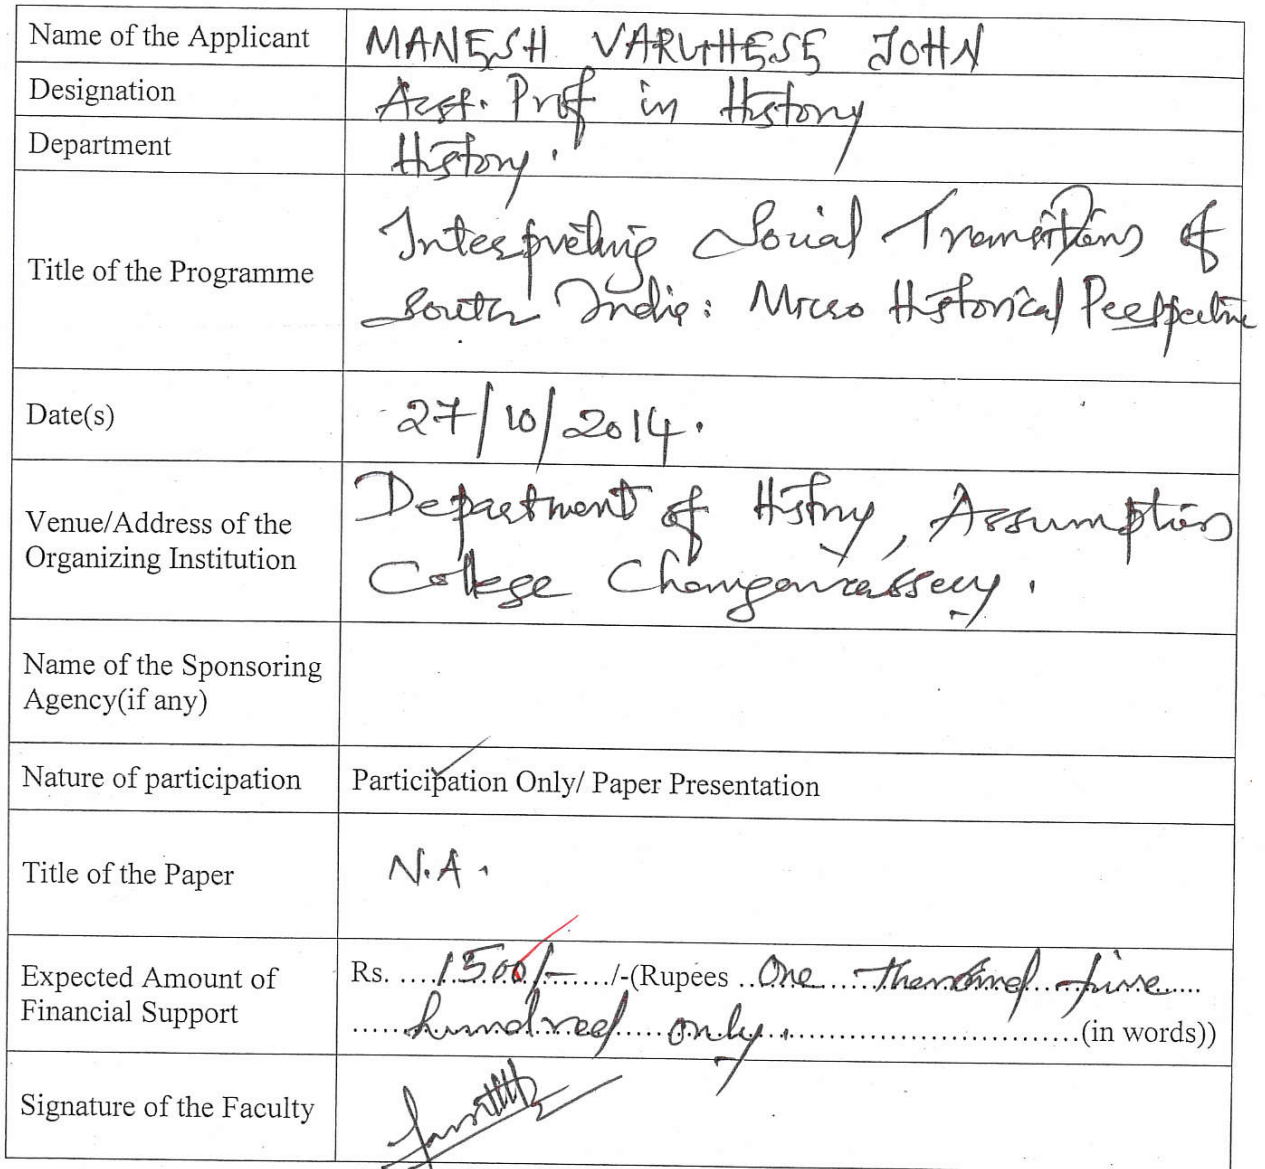 Name of the Applicant MANESH VARUGHESE JOHN
Designation Asst. Prof in History
Department History.
Title of the Programme Interpreting Social Transitions of
South India: Micro Historical Perspective
Date(s) 27/10/2014.
Venue/Address of the
Organizing Institution
Department of History, Assumption
College Changanassery.
Name of the Sponsoring
Agency(if any)
Nature of participation Participation Only/ Paper Presentation
Title of the Paper N.A.
Expected Amount of
Financial Support
Rs. ....1500/-....../-(Rupees ..One....thousand....five....
......hundred....only.................................(in words))
Signature of the Faculty